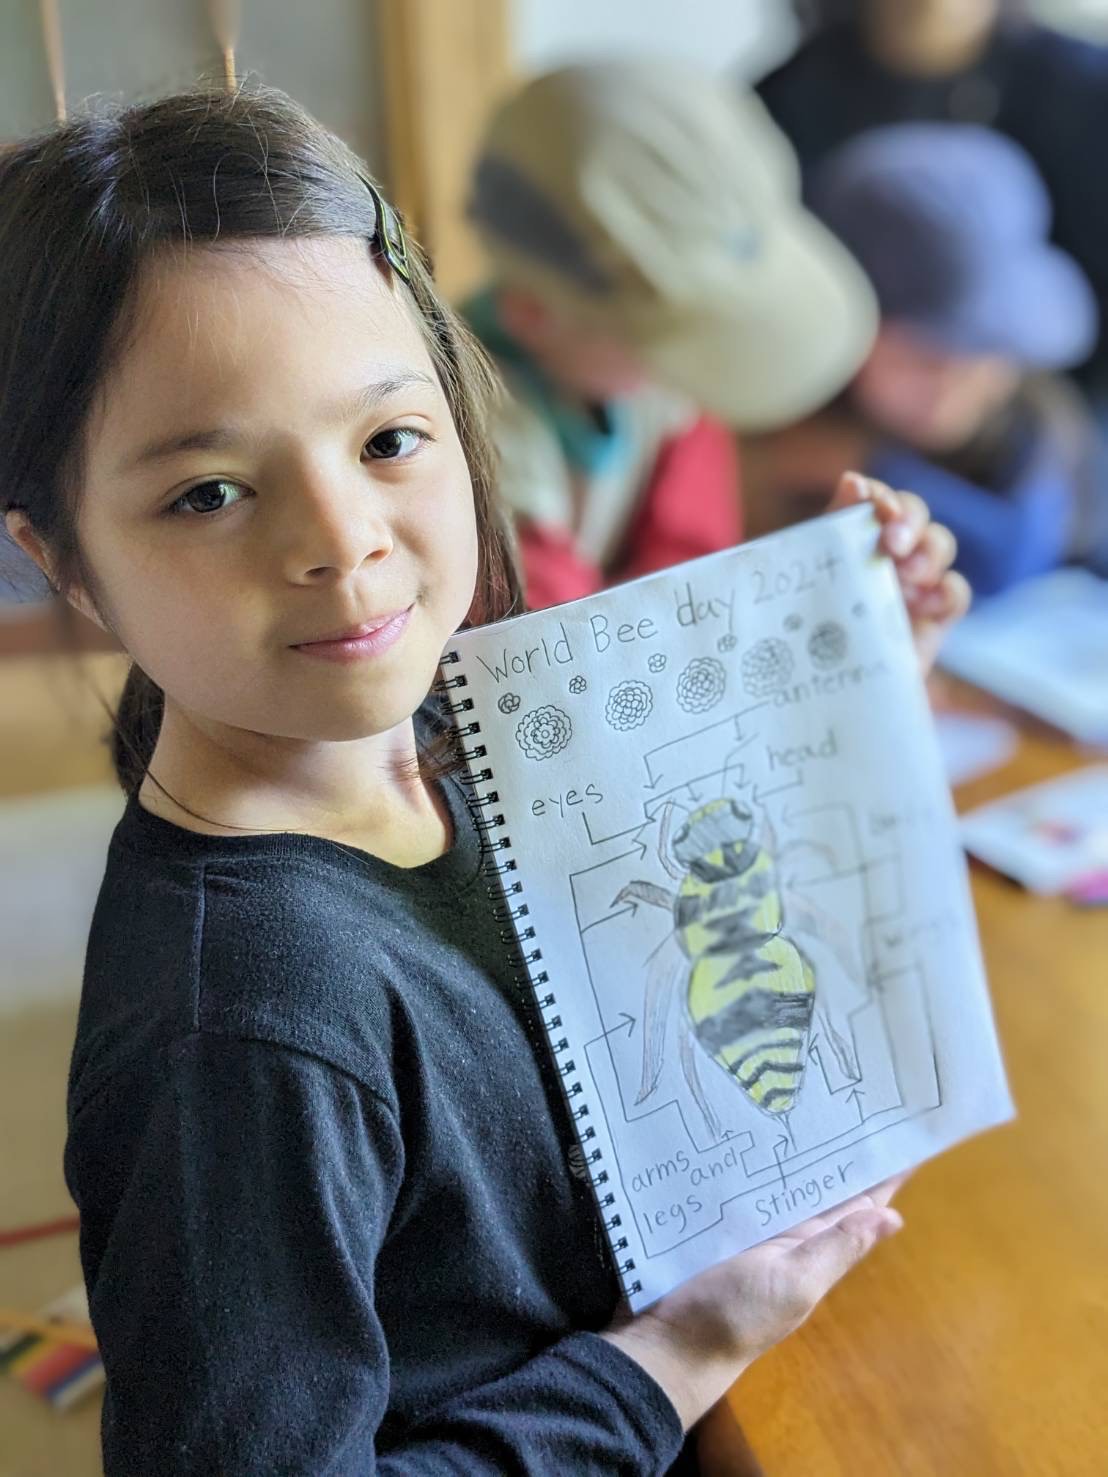 World Bee day 2024
antenna
head
eyes
arms and
legs
Stinger